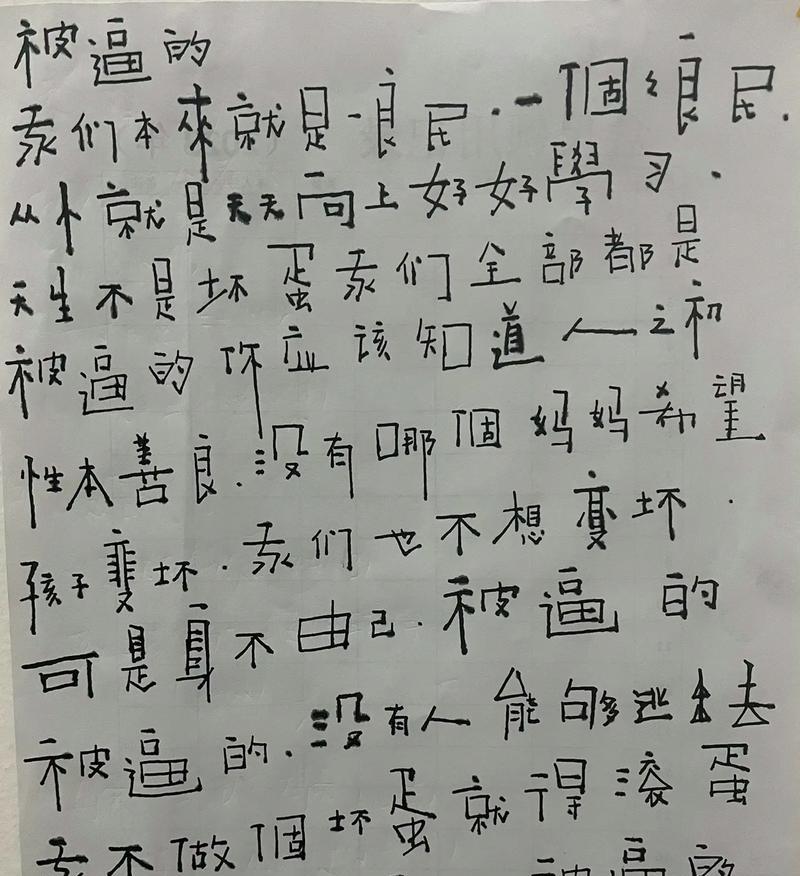 被逼的
我们本來就是一良民.一個個良民.
从小就是天天向上好好學习.
天生不是坏蛋我们全部都是
被逼的你应该知道人之初
性本善良.没有哪個妈妈希望
孩子变坏.我们也不想变坏.
可是身不由己.被逼的
被逼的.没有人能够逃出去
我不做個坏蛋就得滚蛋
被逼的